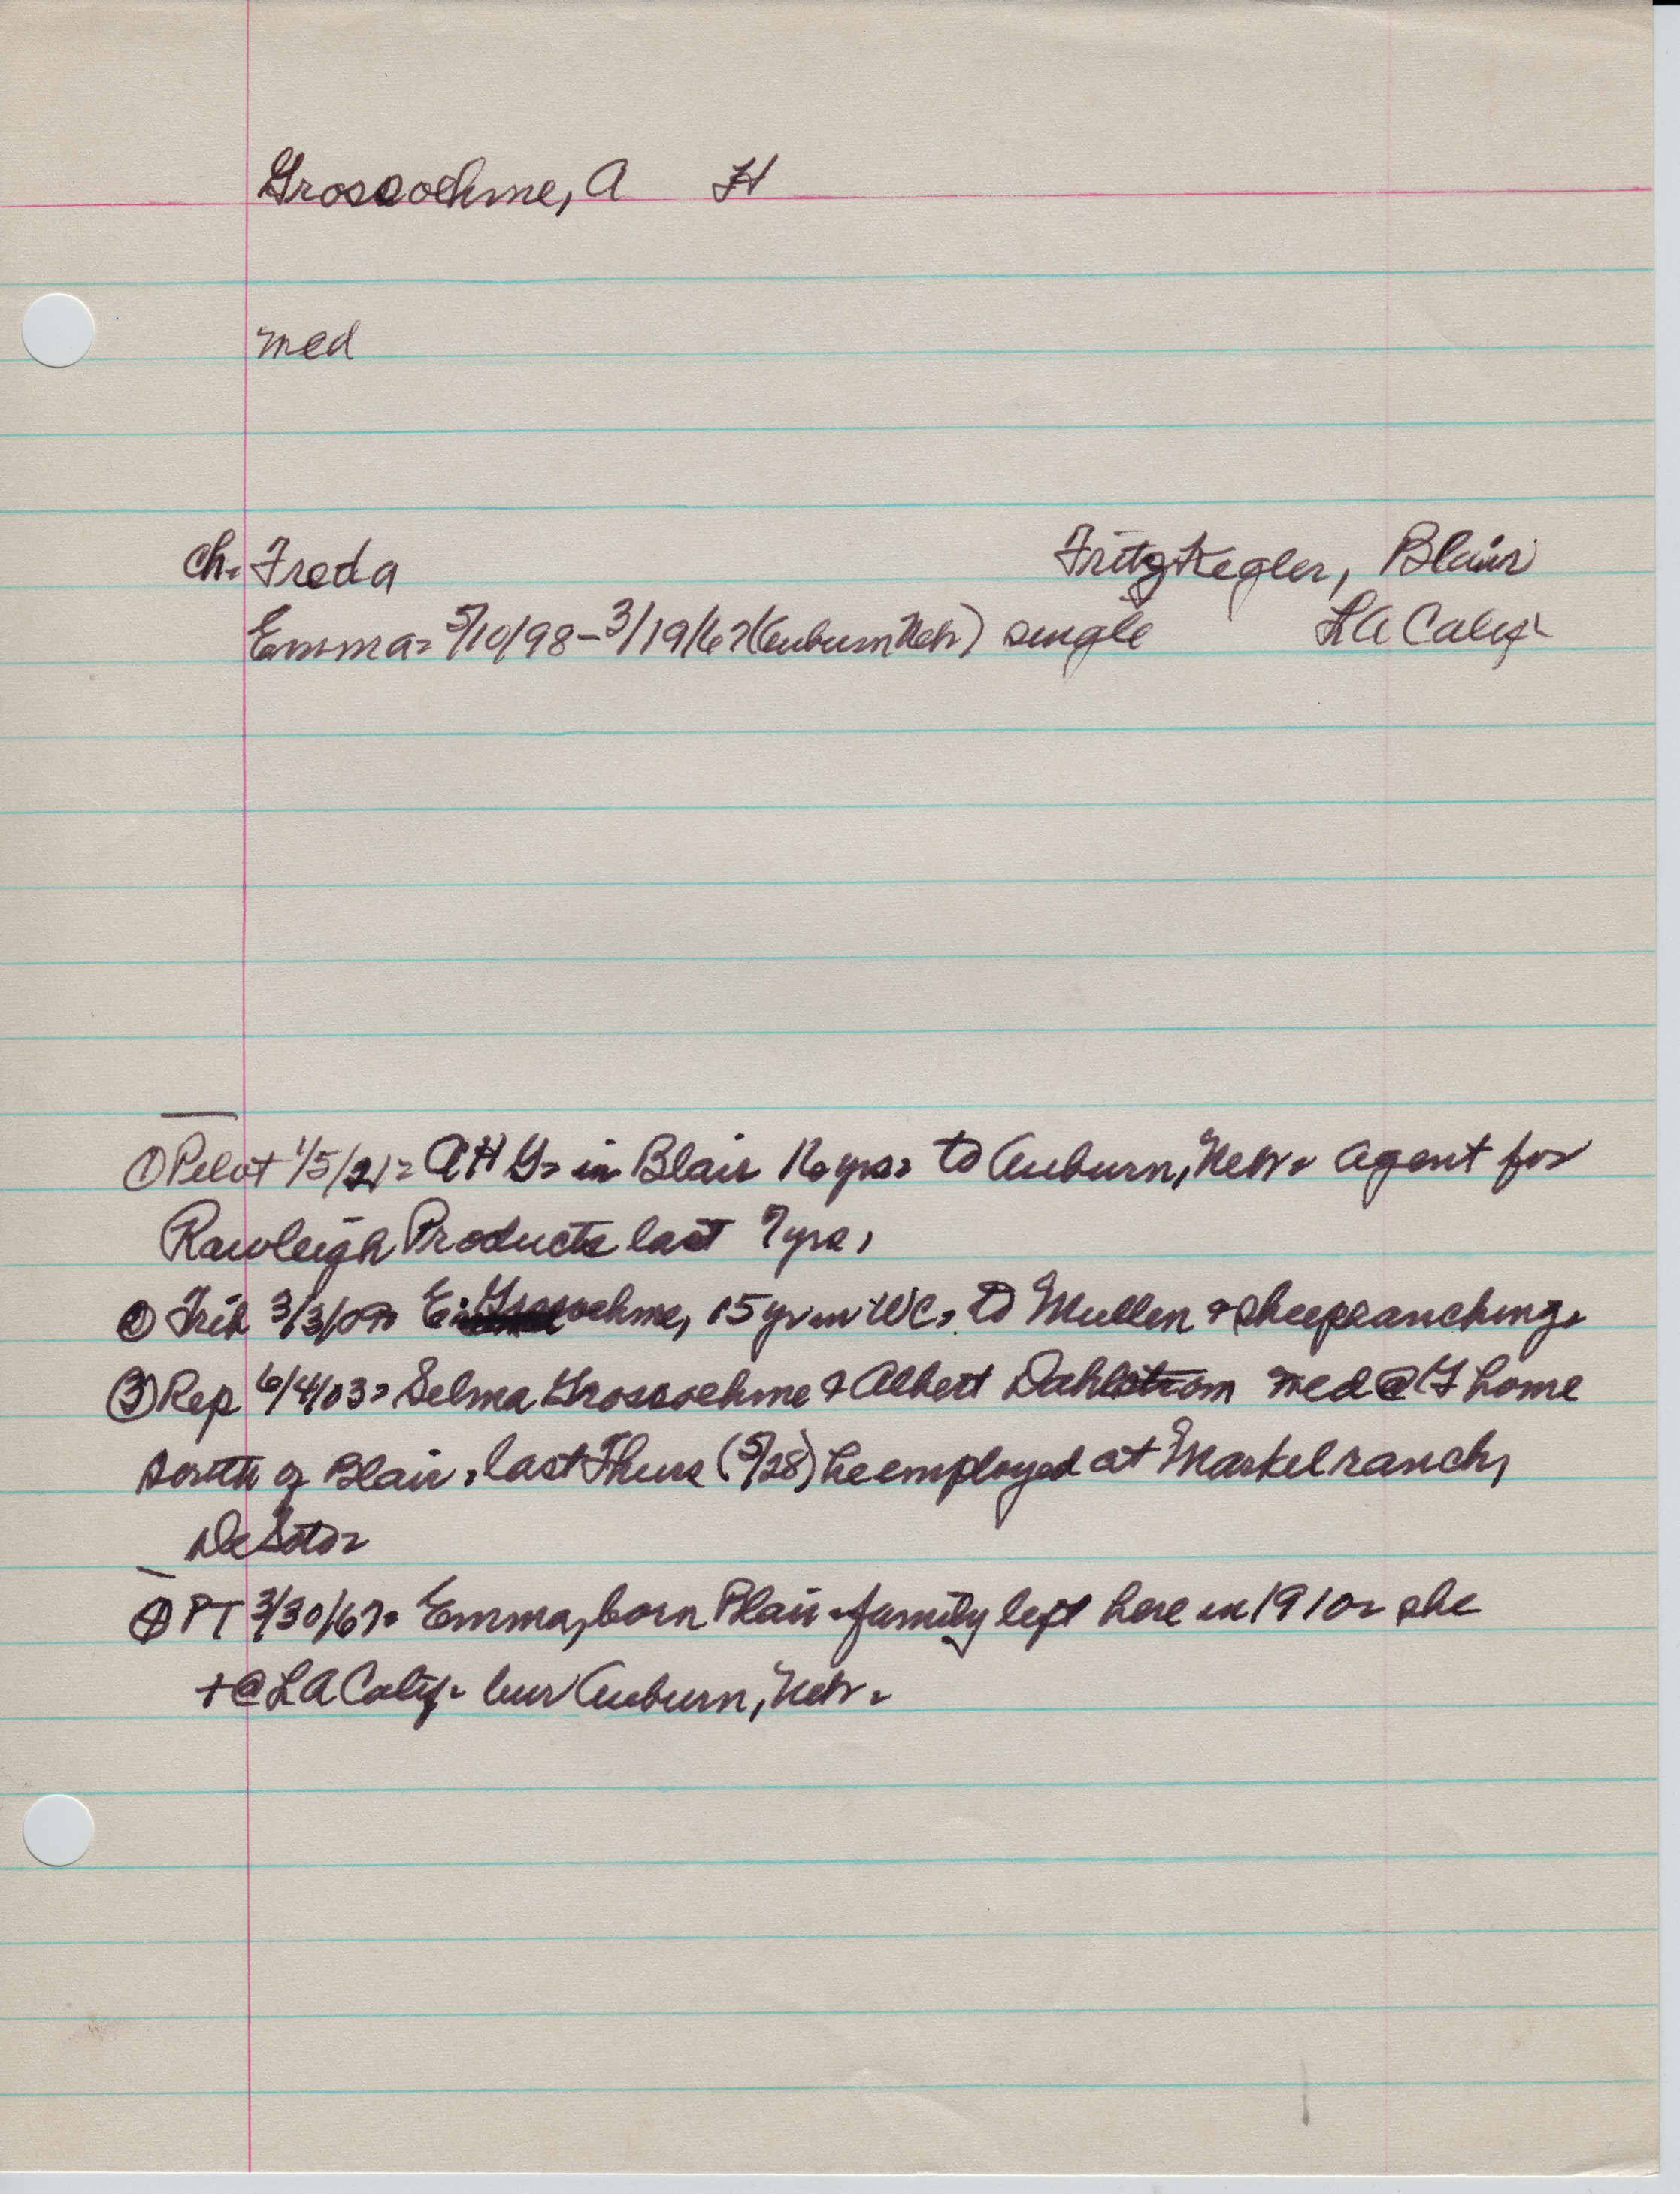 Grosvoehme, A H
med
ch. Freda Fritz Kegler, Blair
Emma- 5/10/98-3/19/67 (Auburn Nebr) single LA Calif
① Pilot 1/5/21- A H G- in Blair 16 yrs- to Auburn, Nebr- agent for
Rawleigh Products last 7 yrs,
② Trib 3/3/09- E. 15 yr in WC- to Mullen & sheep ranching.
③ Rep 6/4/03- Selma & Albert Dahlstrom med @ F home
south of Blair, last Thurs (5/28) he employed at Markel ranch,
De Soto-
④ PT 3/30/67- Emma, born Blair - family left here in 1910- she
+ @ LA Calif- bur Auburn, Nebr-